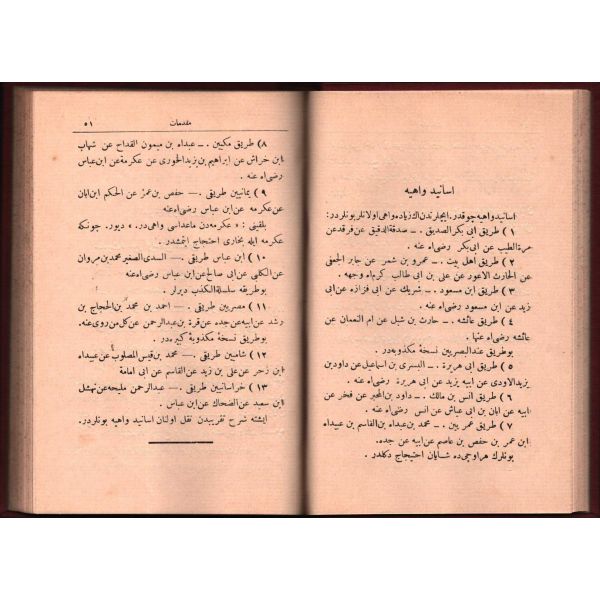 اسانید واهیه
اسانید واهیه چوقدر. ایچلرندن اك زیاده واهی اولانلر بونلردر:
١) طریق ابی بكر الصدیق. ـــ صدقة الدقیق عن فرقد عن
مرة الطیب عن ابی بكر رضی اﷲ عنه.
٢) طریق اهل بیت. ـــ عمرو بن شمر عن جابر الجعفی
عن الحارث الاعور عن علی بن ابی طالب كرم اﷲ وجهه.
٣) طریق ابن مسعود. ـــ شریك عن ابی فزازه عن ابی
زید عن ابن مسعود رضی اﷲ عنه.
٤) طریق عائشه. ـــ حارث بن شبل عن ام النعمان عن
عائشه رضی اﷲ عنها.
بو طریق عند البصریین نسخۀ مكذوبه در.
٥) طریق ابی هریرة. ـــ البسری بن اسماعیل عن داود بن
یزید الاودی عن ابیه یزید عن ابی هریرة رضی اﷲ عنه.
٦) طریق انس بن مالك. ـــ داود بن المحبر عن فخر عن
ابیه عن ابان بن ابی عیاش عن انس رضی اﷲ عنه.
٧) طریق عمر یین. ـــ محمد بن عبداﷲ بن القاسم بن عبیداﷲ
ابن عمر بن حفص بن عاصم عن ابیه عن جده.
بونلرك هر اوچی ده شایان احتیجاج دكلدر.
مقدمات ٥١
٨) طریق مكیین. ـــ عبداﷲ بن میمون القداح عن شهاب
ابن خراش عن ابراهیم بن یزید الخوری عن عكرمة عن ابن عباس
رضی اﷲ عنه.
٩) یمانیین طریقی. ـــ حفص بن عمر عن الحكم ابن ابان
عن عكرمه عن ابن عباس رضی اﷲ عنه
بلقینی: «عكرمه دن ماعداسی واهی در.» دیور. چونكه
عكرمه ایله بخاری احتجاج ایتمشدر.
١٠) ابن عباس طریقی. ـــ السدی الصغیر محمد بن مروان
عن الكلبی عن ابی صالح عن ابن عباس رضی اﷲ عنه.
بو طریقه سلسلة الكذب دیرلر.
١١) مصریین طریقی. ـــ احمد بن محمد بن الحجاج بن
رشد عن ابیه عن جده عن قرة بن عبد الرحمن عن كل من روی عنه.
بو طریق نسخۀ مكذوبۀ كبیره در.
١٢) شامیین طریقی. ـــ محمد بن قیس المصلوب عن عبیداﷲ
ابن زحر عن علی بن زید عن القاسم عن ابی امامة
١٣) خراسانیین طریقی. ـــ عبدالرحمن ملیحه عن نهشل
ابن سعید عن الضحاك عن ابن عباس.
ایشته شرح تقریبدن نقل اولنان اسانید واهیه بونلردر.